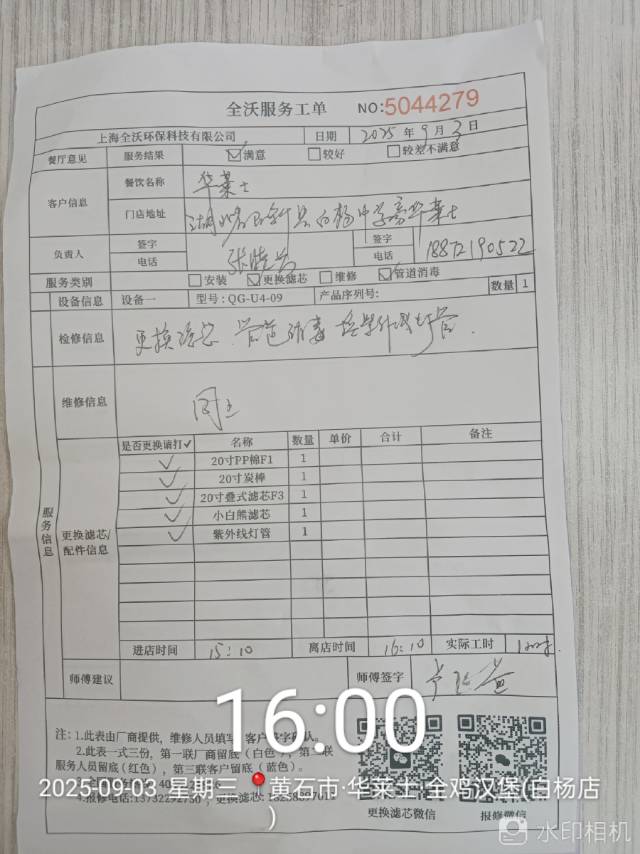 全沃服务工单 NO:5044279
上海全沃环保科技有限公司 日期 2025年9月3日
餐厅意见 服务结果 ☑满意 □较好 □较差不满意
客户信息 餐饮名称 华莱士
门店地址
负责人 签字 签字
电话 电话 18872190522
服务类别 □安装 ☑更换滤芯 □维修 ☑管道消毒
设备信息 设备一 型号:QG-U4-09 产品序列号: 数量 1
检修信息 更换滤芯 管道消毒
维修信息 同上
服务信息
更换滤芯/配件信息
是否更换请打✓ 名称 数量 单价 合计 备注
✓ 20寸PP棉F1 1
✓ 20寸炭棒 1
✓ 20寸叠式滤芯F3 1
✓ 小白熊滤芯 1
✓ 紫外线灯管 1
进店时间 15:10 离店时间 16:10 实际工时
师傅建议 师傅签字
16:00
注:1.此表由厂商提供,维修人员填写
2.此表一式三份,第一联厂商留底(白色),第
服务人员留底(红色),第三联客户留底(蓝色)。
4.报修电话: 更换滤芯:
更换滤芯微信 报修微信
2025-09-03 星期三 黄石市·华莱士·全鸡汉堡(白杨店
)
水印相机